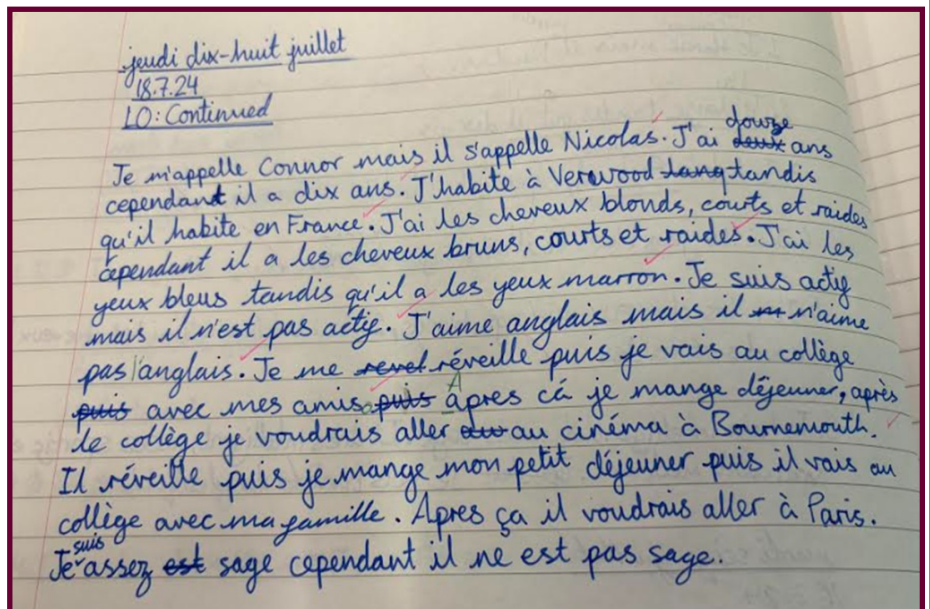 jeudi dix-huit juillet
18.7.24
LO: Continued
Je m'appelle Connor mais il s'appelle Nicolas. J'ai deux douze ans
cependant il a dix ans. J'habite à Verwood tandis
qu'il habite en France. J'ai les cheveux blonds, courts et raides
cependant il a les cheveux bruns, courts et raides. J'ai les
yeux bleus tandis qu'il a les yeux marron. Je suis actif
mais il n'est pas actif. J'aime anglais mais il n'aime
pas l'anglais. Je me revel réveille puis je vais au collège
puis avec mes amis puis Apres cá je mange déjeuner, après
le collège je voudrais aller au cinéma à Bournemouth.
Il réveille puis je mange mon petit déjeuner puis il vais au
collège avec ma famille. Apres ça il voudrais aller à Paris.
Je suis assez est sage cependant il ne est pas sage.